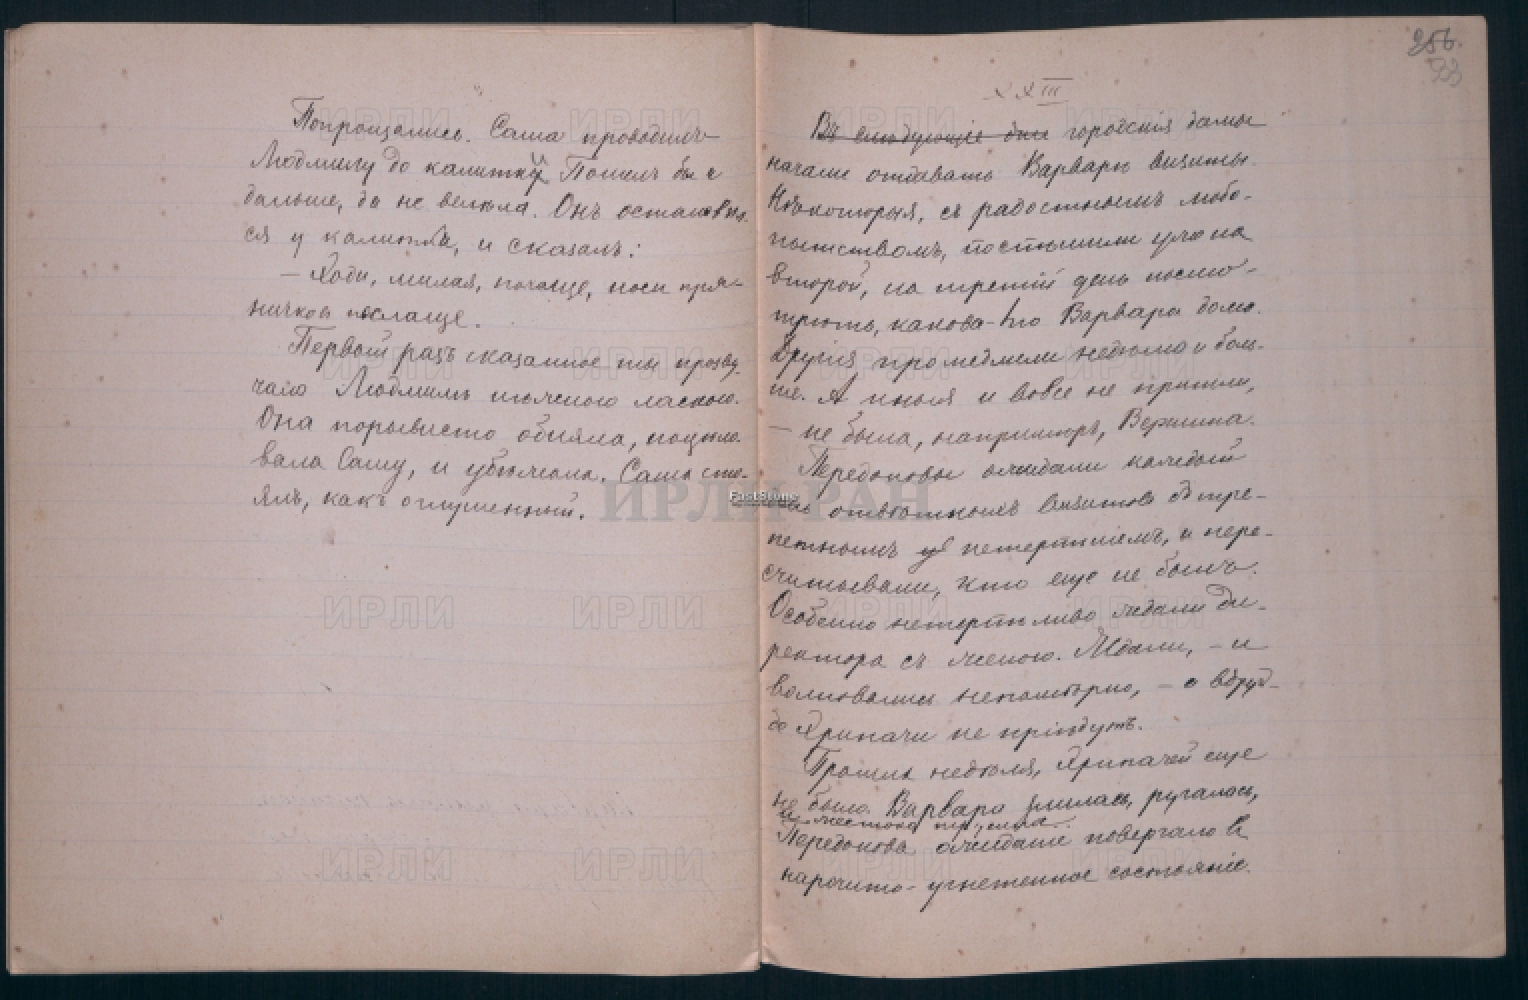 Попрощались. Саша проводилъ
Людмилу до калитки. Пошелъ бы и
дальше, да не велѣла. Онъ остановил-
ся у калитки, и сказалъ:
— Ходи, милая, почаще, носи пря-
ничков послаще.
Первый разъ сказанное ты прозву-
чало Людмилѣ нѣжною ласкою.
Она порывисто обняла, поцѣло-
вала Сашу, и убѣжала. Саша сто-
ялъ, какъ оглушенный.
256.
93
XXIII
Въ слѣдующіе дни городскія дамы
начали отдавать Варварѣ визиты.
Нѣкоторыя, съ радостнымъ любо-
пытствомъ, поспѣшили уже на
второй, на третій день посмо-
трѣть, какова-то Варвара дома.
Другія промедлили недѣлю и боль-
ше. А иныя и вовсе не пришли,
— не была, напримѣръ, Вершина.
Передоновы ожидали каждый
день отвѣтныхъ визитов съ тре-
петнымъ нетерпѣніемъ, и пере-
считывали, кто еще не былъ.
Особенно нетерпѣливо ждали ди-
ректора съ женою. Ждали, — и
волновались непомѣрно, — а вдруг-
да Хрипачи не пріѣдутъ.
Прошла недѣля, Хрипачей еще
не было. Варвара злилась, ругалась,
Передонова ожиданіе повергало в
нарочито-угнетенное состояніе.
ИРЛИ РАН
ИРЛИ
FastStone